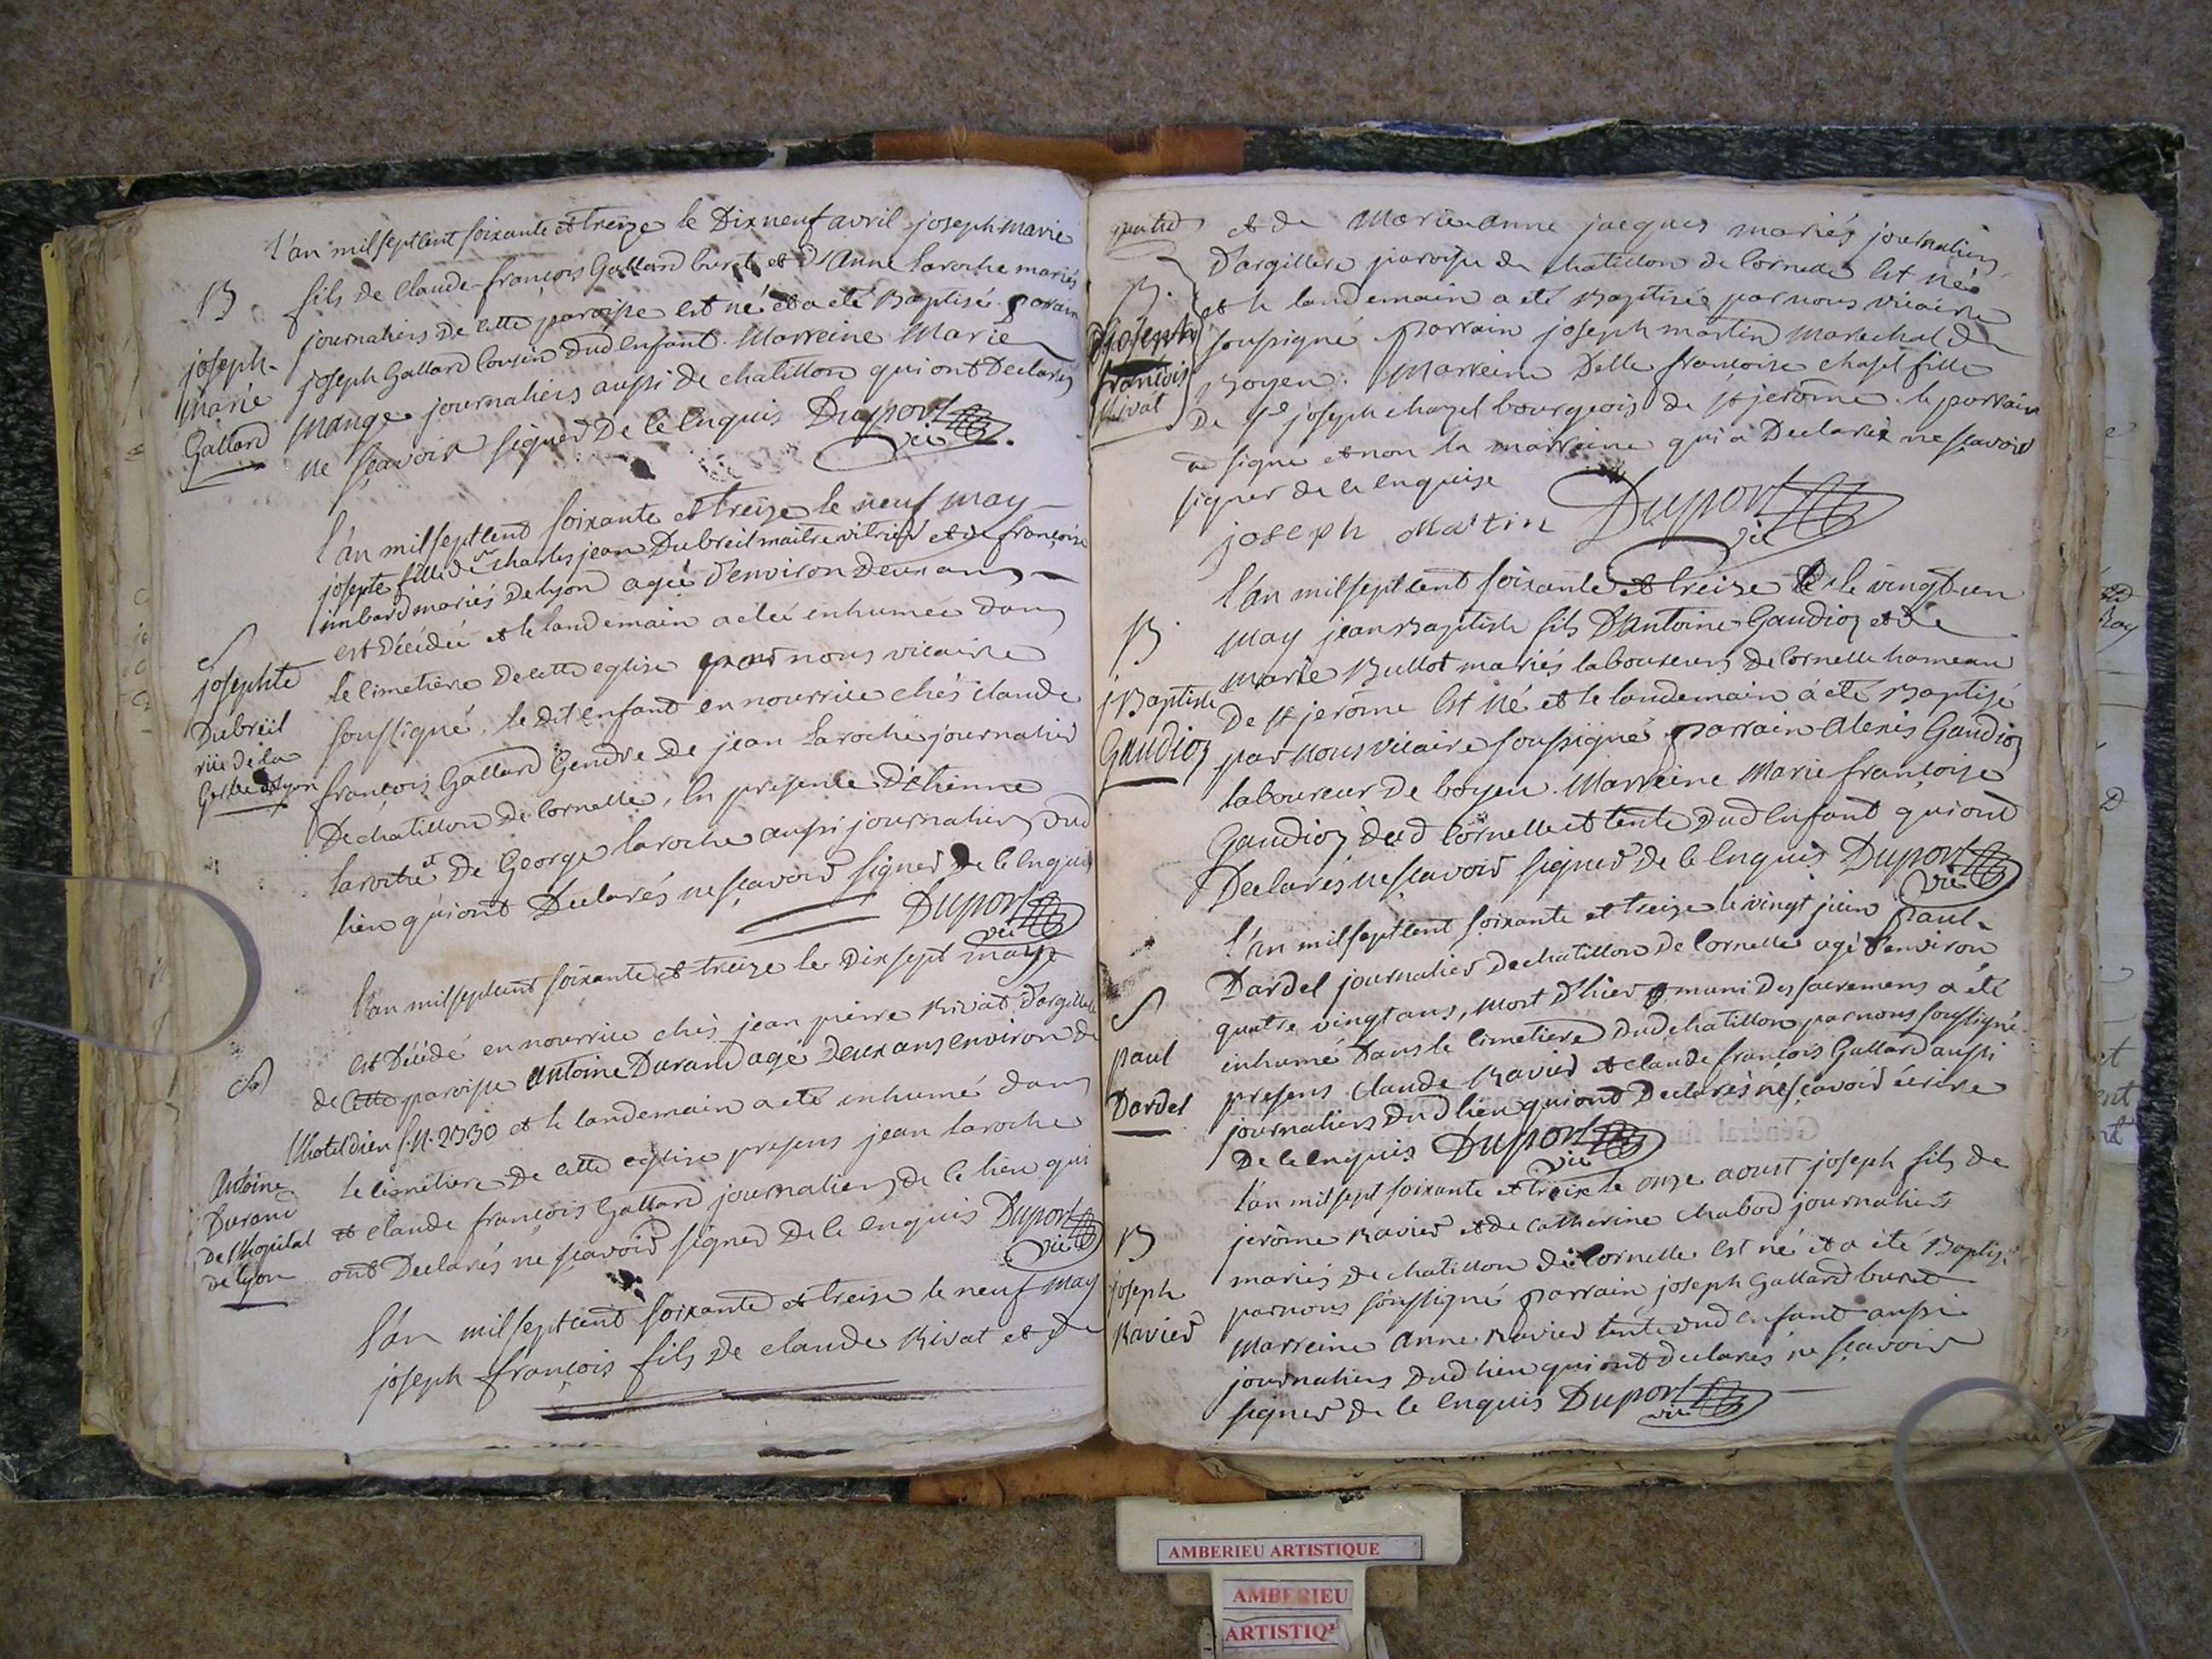 B
joseph-
marie
Gallard
l'an mil sept cent soixante et treize le Dix neuf avril joseph marie
fils de claude-françois Gallard buret et d'Anne Laroche mariés
journaliers de cette paroisse est né et a eté Baptisé. parrain
joseph Gallard cousin dud enfant. Marreine Marie
Mange journaliers aussi de chatillon qui ont Declarés
ne sçavoir signer De ce Enquis Duport
vic
S
josephte
Dubreil
rüe de la
de Lyon
l'an mil sept cent soixante et treize le neuf may
josepte fille de sr charles jean Dubreil maitre vitrier et de françoise
imbard mariés de lyon agée d'environ Deux ans
est Décédée et le landemain a eté inhumée dans
le cimetiere de cette eglise par nous vicaire
sousigné, le dit enfant en nourrice chés claude
françois Gallard Gendre De jean Laroche journalier
De chatillon de Cornelle, En presence d'Etienne
Laroche et De George laroche aussi journaliers dud
lien qui ont Declarés ne sçavoir signer De ce Enquis
Duport
vic
S
Antoine
Durand
De l'hopital
de lyon
l'an mil sept cent soixante et treize le Dix sept may
est Décédé en nourrice chés jean pierre Rivat d'argillere
de cette paroisse Antoine Durand agé Deux ans environ de
l'hotel dieu s. N. 2330 et le landemain a eté inhumé dans
le cimetiere de cette eglise presens jean laroche
et claude françois Gallard journaliers de ce lieu qui
ont Declarés ne sçavoir signer De ce Enquis Duport
vic
l'an mil sept cent soixante et treize le neuf may
joseph françois fils de claude Rivat et de
B.
joseph
françois
Rivat
et de Marie anne jacques mariés journaliers
D'argillere paroisse de chatillon de Cornelle Est né
et le landemain a eté Baptisé par nous vicaire
soussigné parrain joseph martin Marechal de
Boyeu. Marreine Delle francoise chapel fille
De sr joseph chazel bourgeois de st jerôme. le parrain
a signé et non la marreine qui a Declarée ne sçavoir
signer de ce enquise
joseph Martin Duport
vic
B.
j Baptiste
Gaudioz
l'an mil sept cent soixante et treize le vingt-un
may jean Baptiste fils D'Antoine Gaudioz et de
marie Bullot mariés laboureurs de Cornelle hameau
De st jerôme Est né et le landemain a eté Baptisé
par nous vicaire soussigné parrain Alexis Gaudioz
laboureur de boyeu. Marreine Marie francoise
Gaudioz dud Cornelle et tente dud Enfant qui ont
Declarés ne sçavoir signer de ce Enquis Duport
vic
S
paul
Dardel
l'an mil sept cent soixante et treize le vingt juin paul
Dardel journalier de chatillon de Cornelle agé d'environ
quatre vingt ans, mort d'hier muni des sacremens a été
inhumé Dans le cimetiere dud chatillon par nous sousigné
presens claude Ravier et claude françois Gallard aussi
journaliers dud lieu qui ont Declarés ne sçavoir écrire
De ce enquis Duport
vic
B
joseph
Ravier
l'an mil sept soixante et treize le onze aoust joseph fils de
jerôme Ravier et de catherine chabod journaliers
mariés de chatillon de Cornelle est né et a eté Baptisé
par nous sousigné parrain joseph Gallard buret
Marreine Anne Ravier tente dud enfant aussi
journaliers dud lieu qui ont declarés ne sçavoir
signer de ce enquis Duport
vic
AMBERIEU ARTISTIQUE
AMBERIEU
ARTISTIQ